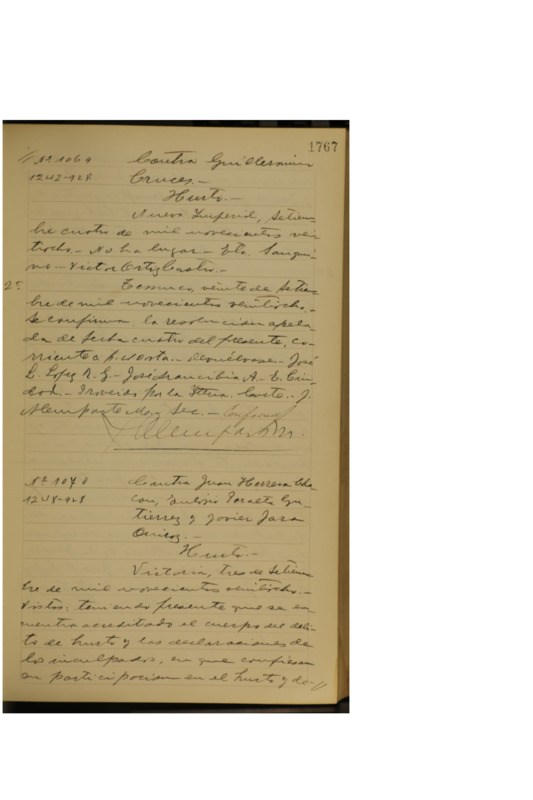 1767
// Nº 1069 Contra Guillermina
1242-928 Cruces.-
Hurto.-
Nueva Imperial, Setiem-
bre cuatro de mil novecientos vein-
tiocho.- No ha lugar.- Eto. Sanqui-
no.- Victor Ortiz Castro.-
2º Temuco, veinte de Setiem-
bre de mil novecientos veintiocho.-
Se confirma la resolucion apela-
da de fecha cuatro del presente, co-
rriente a f. vuelta.- Devuélvase.- José
L. Lopez R. G.- José Arancibia A.- E. Ciu-
dad.- Proveido por la Iltma. Corte.- J.
Alemparte M., Sec.- Conforme
Nº 1070 Contra Juan Herrera Cha
1248-928 con, Eulojio Peralta Gu-
tierrez y Javier Jara
Hurto.-
Victoria, tres de Setiem
bre de mil novecientos veintiocho.-
Vistos: teniendo presente que se en-
cuentra acreditado el cuerpo del deli-
to de hurto y las declaraciones de
los inculpados, en que confiesan
su participacion en el hurto y de-//